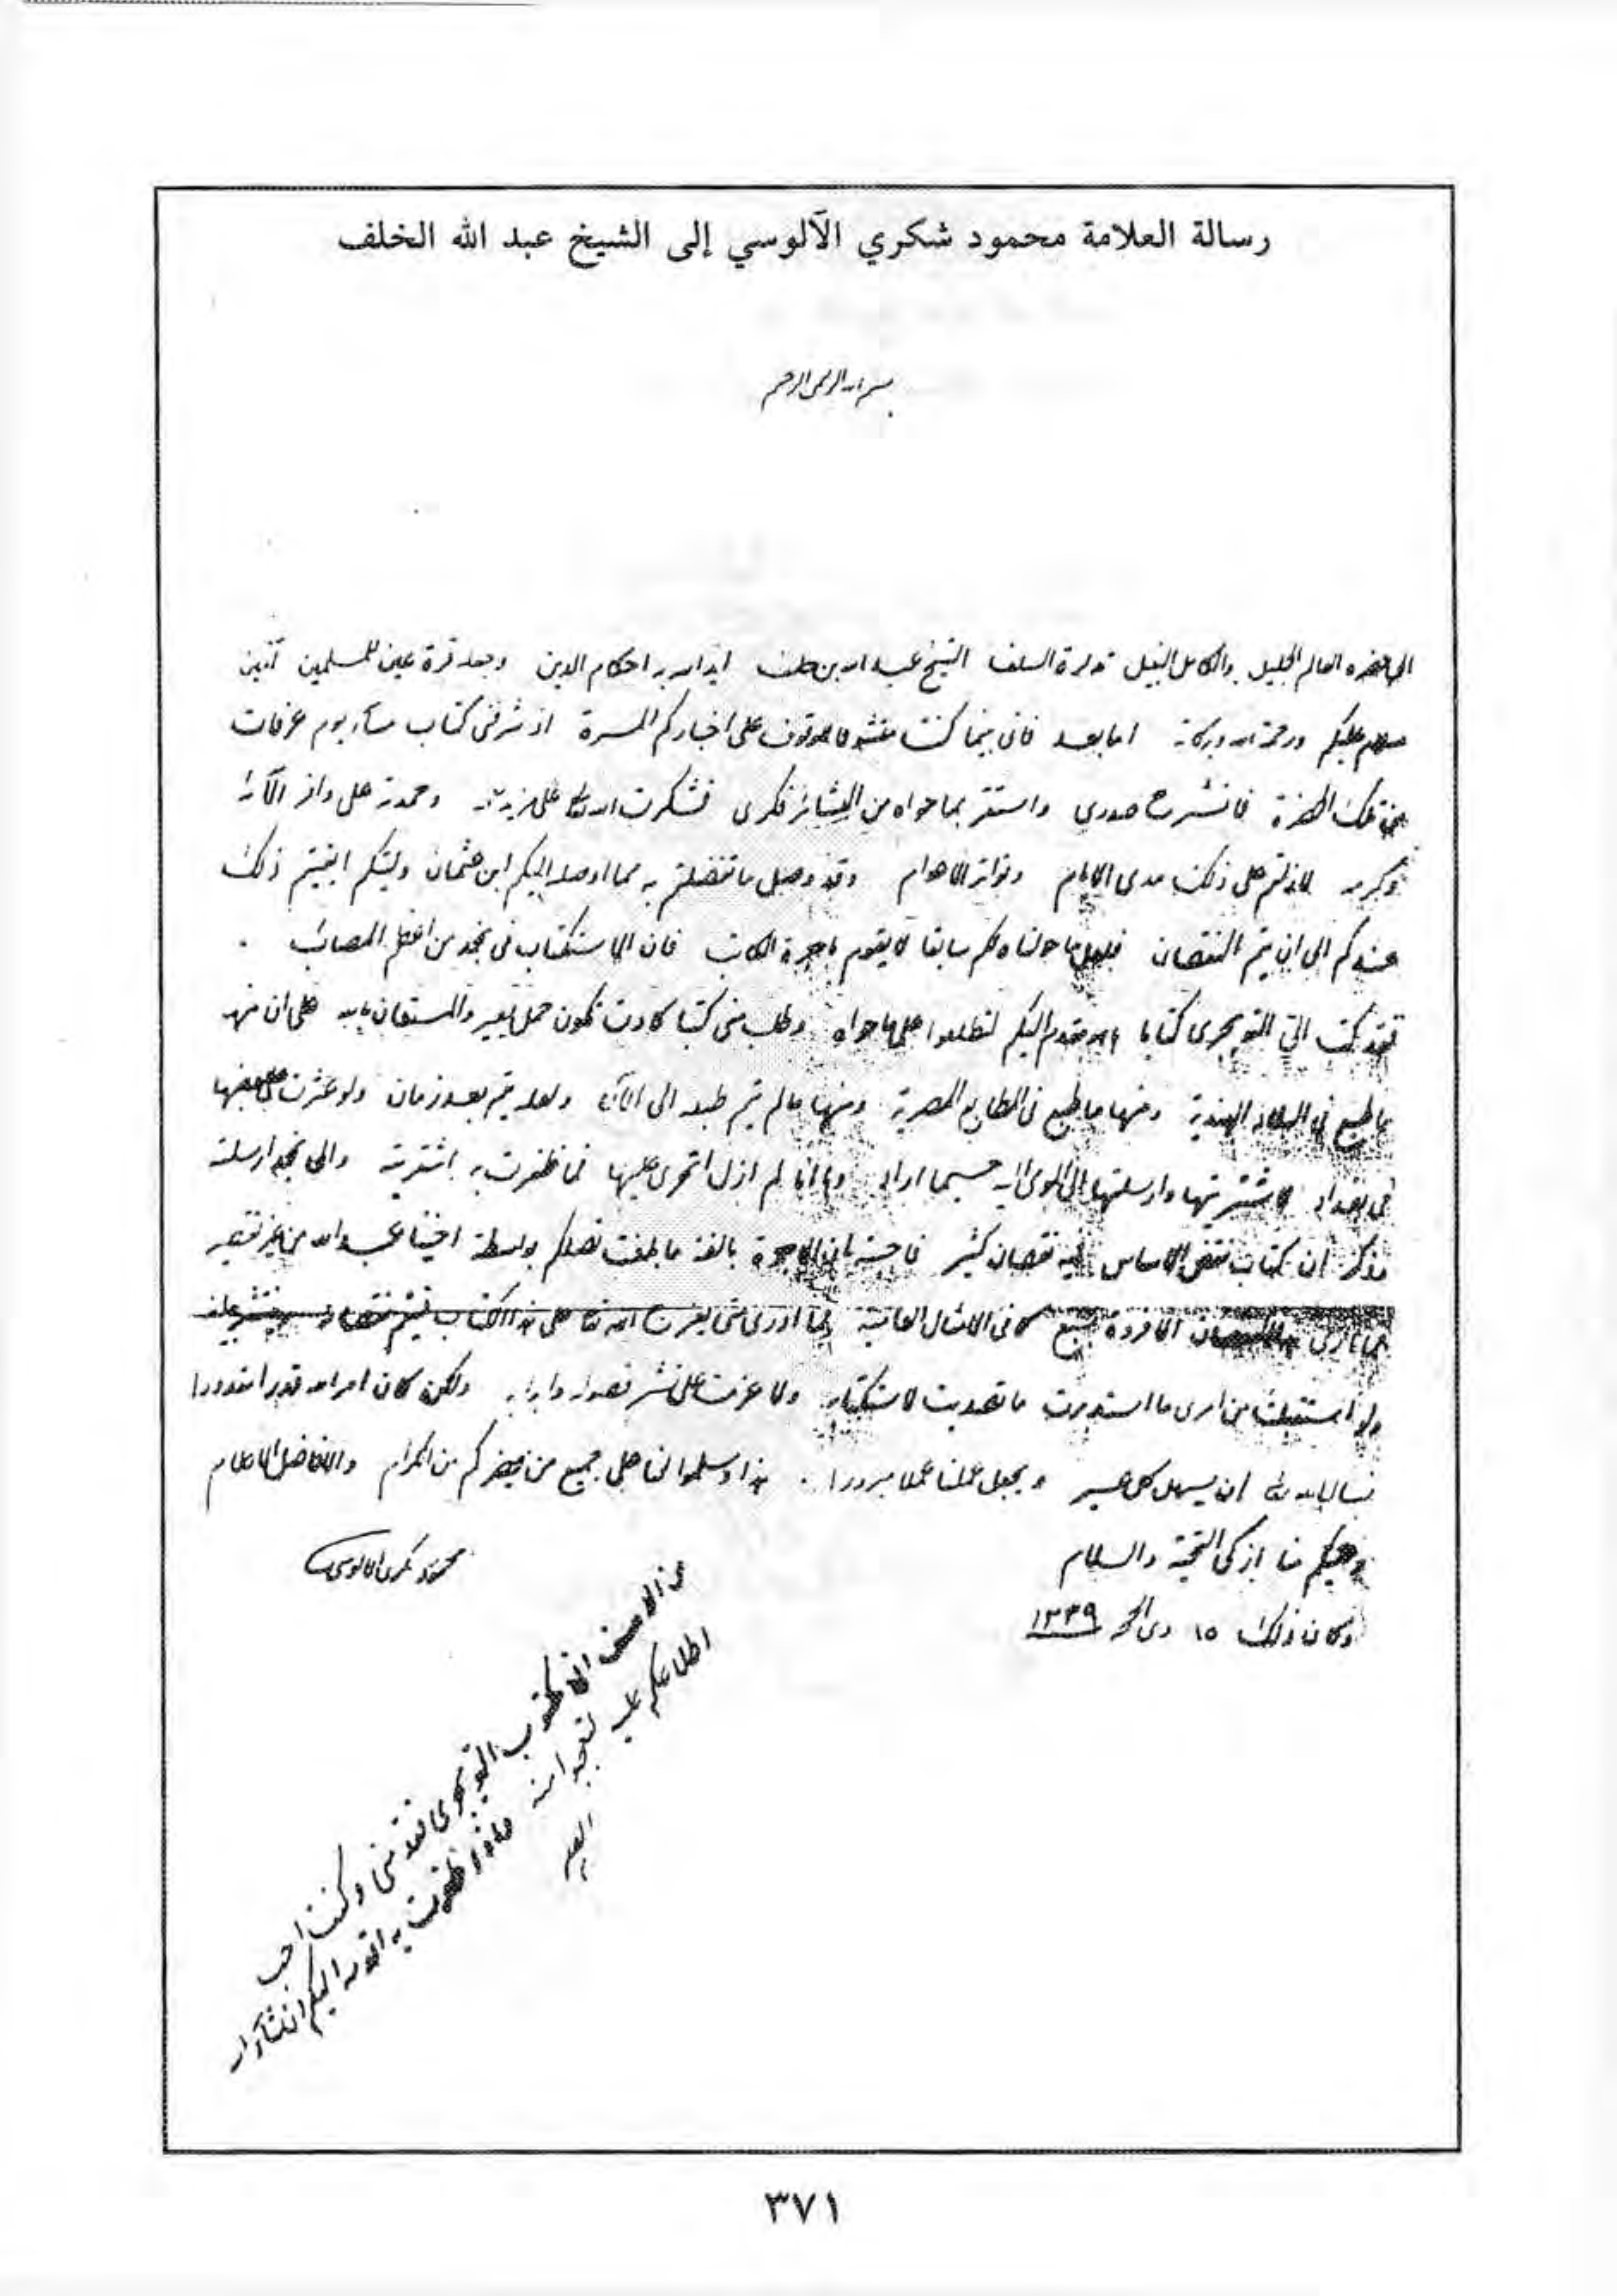 رسالة العلامة محمود شكري الآلوسي إلى الشيخ عبد الله الخلف
بسم الله الرحمن الرحيم
الى حضرة العالم الجليل والكامل النبيل تذكرة السلف الشيخ عبد الله بن خلف ايد الله به احكام الدين وجعله قرة عين للمسلمين آمين
سلام عليكم ورحمة الله وبركاته اما بعد فانى بينما كنت متشوفا للوقوف على اخباركم المسرة اذ شرفنى كتاب مساء يوم عرفات
من تلك الحضرة فانشرح صدري واستقر بما حواه من البشائر فكري فشكرت الله تعالى على مزيد وحمدته على وافر آلائه
وكرمه لا زلتم على ذلك مدى الايام وتواتر الاعوام وقد وصل ما تفضلتم به مما اوصله اليكم ابن عثمان وليتكم ابقيتم ذلك
عندكم الى ان يتم النقصان فلعل ما حولناه لكم سابقا لا يقوم باجرة الكاتب فان الاستكتاب فى نجد من اعظم المصائب
فقد كتب الي التويجرى كتابا اقدم اليكم لتطلعوا على ما حواه وطلب منى كتبا كادت تكون حمل بعير والمستعان بالله على ان منها
ما طبع في البلاد الهندية ومنها ما طبع فى المطابع المصرية ومنها ما لم يتم طبعه الى الآن ولعله يتم بعد زمان ولو عثرت على بعضها
فى بغداد لاشتريتها وارسلتها اليه حسبما اراد وها انا لم ازل اتحرى عليها فما ظفرت به اشتريته والى نجد ارسلته
وذكر ان كتاب نقض الاساس فيه نقصان كثير فاحسبه بان الاجرة بالغة ما بلغت تصلكم بواسطة اخينا عبد الله من غير تقصير
الامثال العامية فما ادرى متى يفرج الله تعالى على هذا الكتاب فيتم نقصانه
ولو استقبلت من امرى ما استدبرت ما تصديت لاستكتابه ولا عزمت على نشر فصوله وابوابه ولكن كان امر الله قدرا مقدورا
نسأل الله تعالى ان يسهل كل عسير ويجعل عملنا عملا مبرورا هذا وسلموا لنا على جميع من يحضركم من الكرام والافاضل الاعلام
وعليكم منا ازكى التحية والسلام
محمود شكرى الالوسى
وكان ذلك ١٥ ذى الحجه ١٣٣٩
من الاسف ان مكتوب التويجرى فقد منى وكنت احب
اطلاعكم عليه لتعجبوا منه واذا ظفرت به اقدمه اليكم ان شاء الله
٣٧١